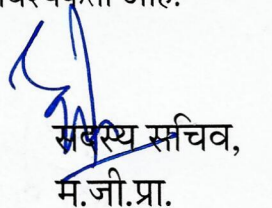 आहे.
सदस्य सचिव,
म.जी.प्रा.